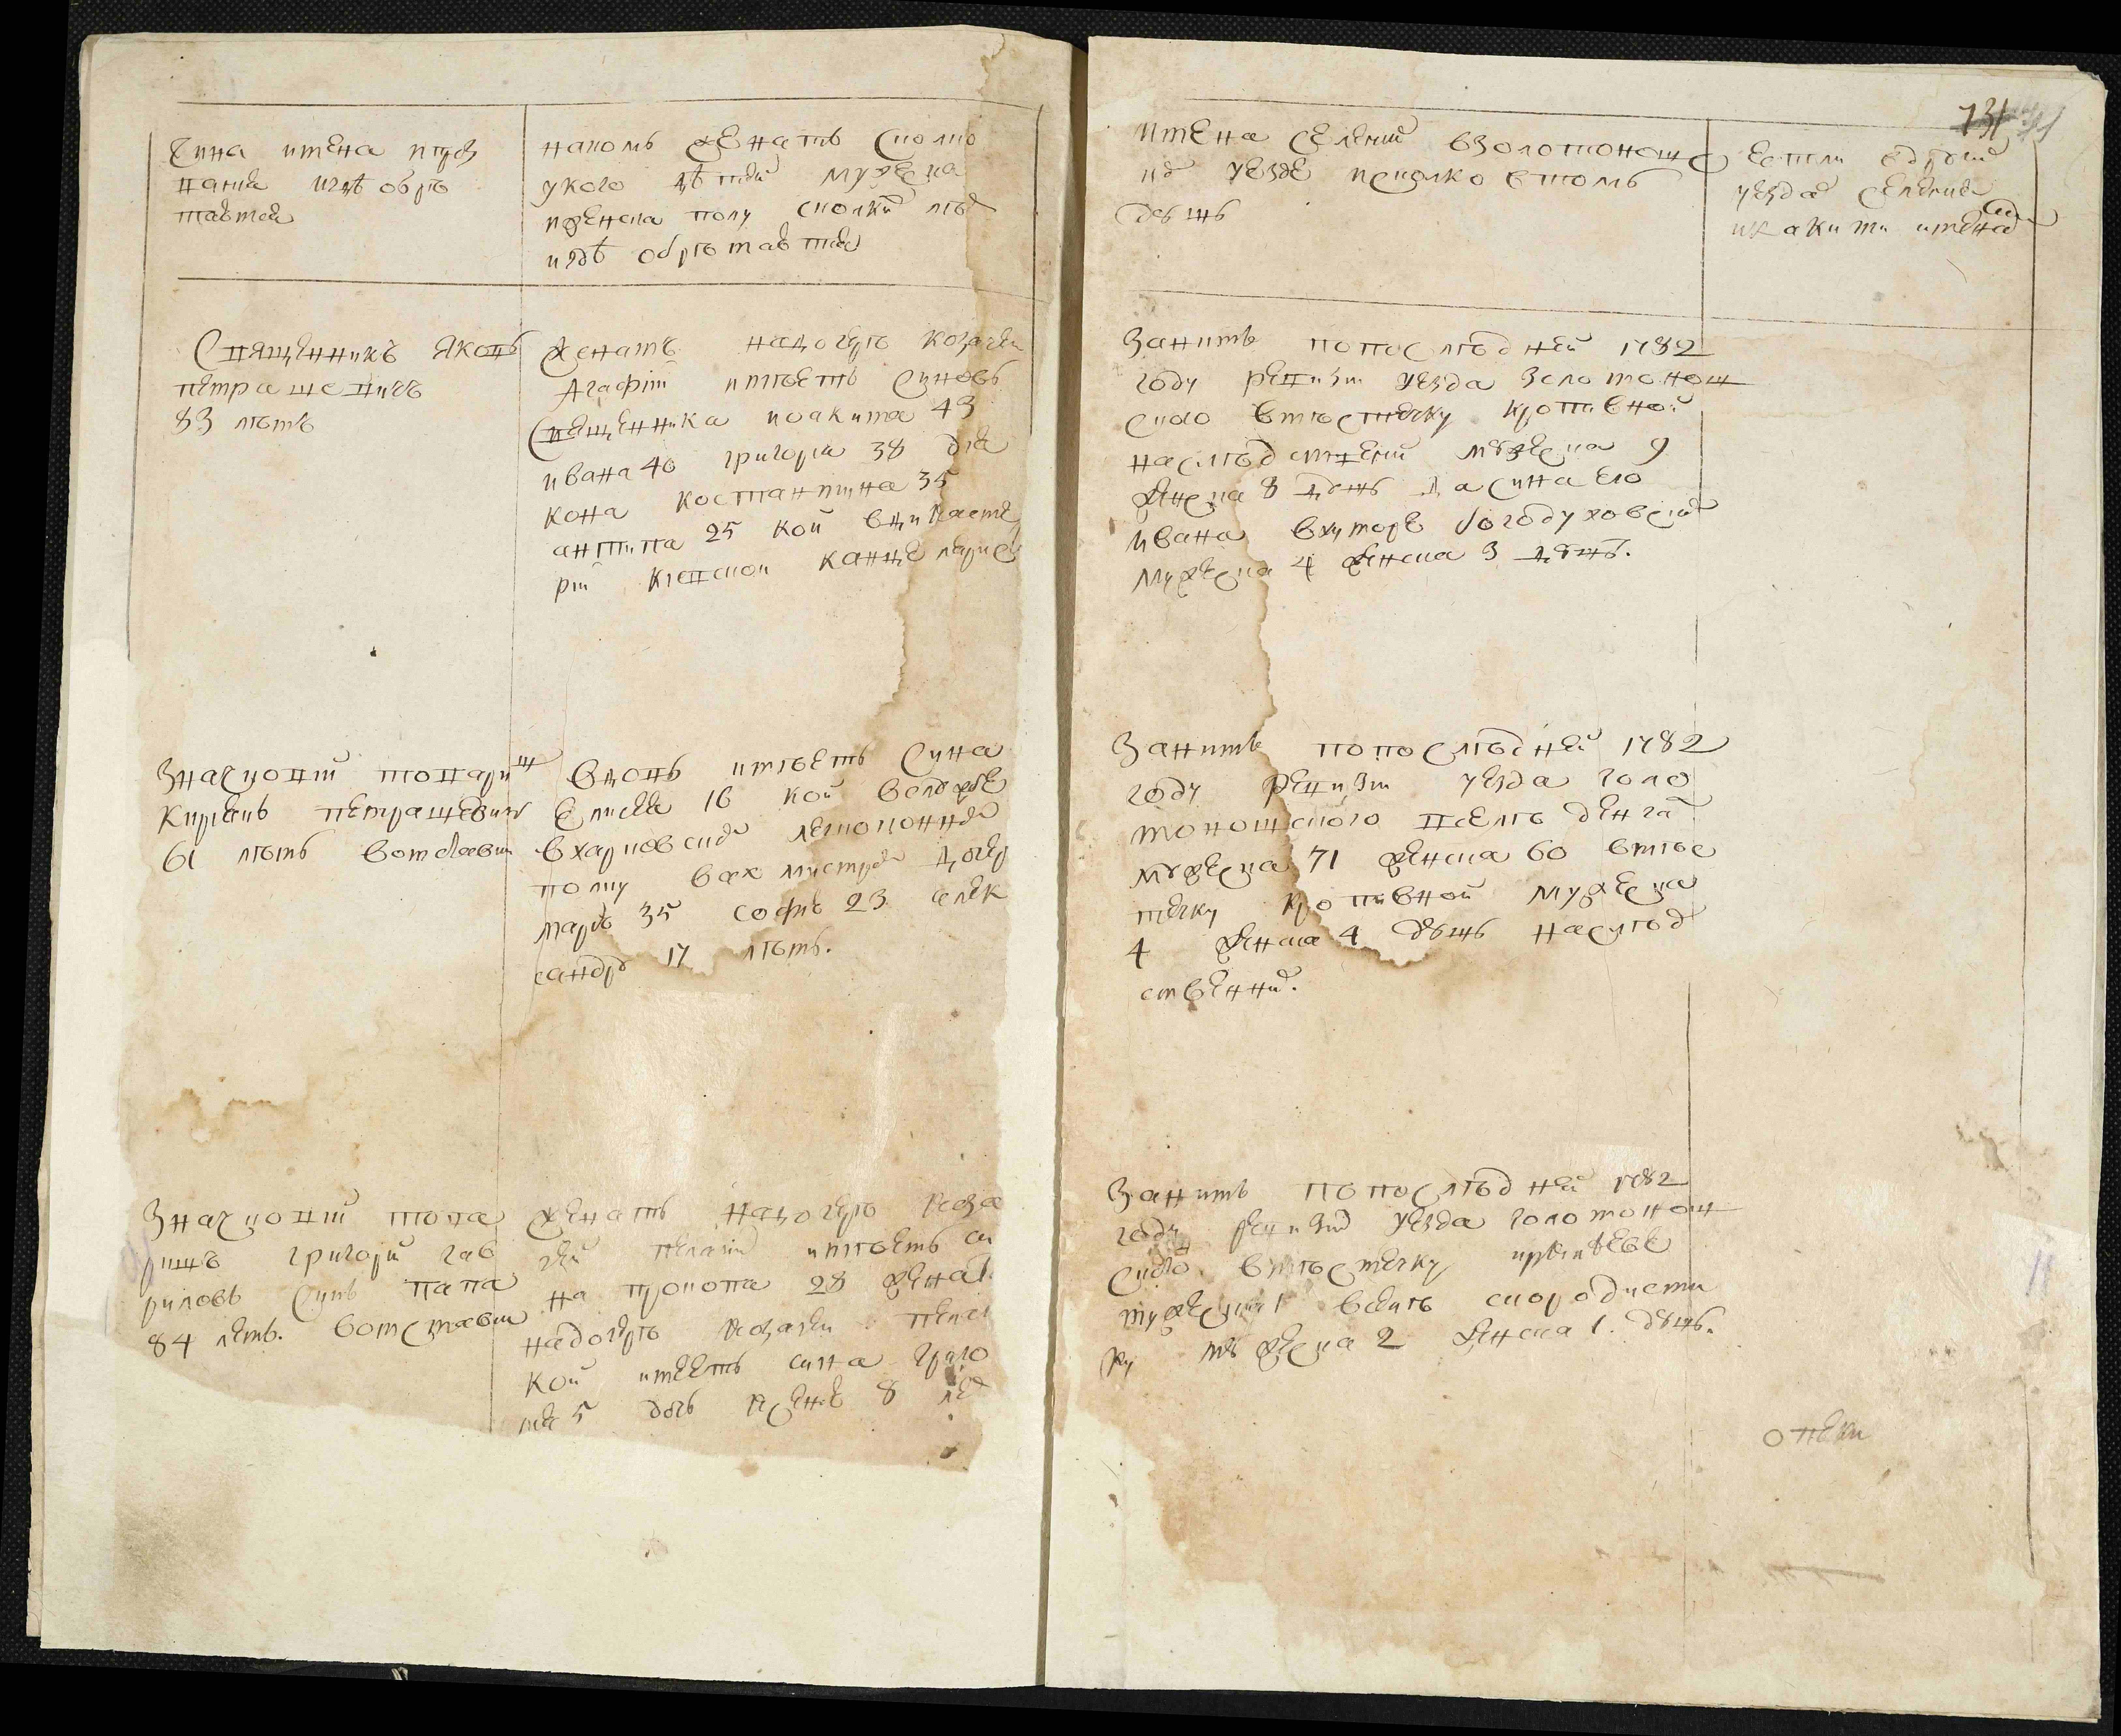 Чина имена и проз
вания игдѣ обрѣ
таются
накомъ женатъ сколко
укого дѣтей мужеска
иженска полу сколки лѣт
игдѣ обрѣтаются
имена селений взолотонош
ком уезде исколко втомъ
душъ
естли вдругих
уездах селения
икакими имена
Священникъ Яковъ
петрашевичъ
83 лѣтъ
Женатъ надочерѣ козачей
Агафии имѣетъ синовъ
Священника иоакима 43
ивана 40 григория 38 дя
кона костантина 35
антипа 25 кой вдикасте
рии киевской канцелярист
Занимъ попослѣдней 1782
году ревизии уезда золотонош
ского вмѣстечку кропивной
наслѣдственни мужеска 9
женска 8 душъ да сина его
Ивана вхуторе богодуховских
мужеска 4 женска 3 душъ.
Значковий товарищ
Кириакъ петрашевич
61 лѣтъ вотставки
Вдовъ имѣетъ сина
Елисея 16 кой вслужбе
вхарковском легкоконном
полку вахмистром дочер
марю 35 софию 23 алек
сандру 17 лѣтъ.
Занимъ попослѣдней 1782
году ревизии уезда золо
тоношского вселѣ денгах
мужеска 71 женска 60 вмѣс
течку кропивной мужеска
4 женска 4 душъ наслѣд
ственни.
Значковий това
рищъ григорий гав
риловъ синъ папа
84 летъ. вотставки
женатъ надочерѣ коза
чей пелагии имѣетъ си
на прокопа 28 женат
надочерѣ козачей
кой имеетъ сина григо
рия 5 дочъ ксению 8 лет
Занимъ попослѣдней 1782
году ревизии уезда золотонош
ского вмѣстечку ирклѣеве
мужеска 1 вселѣ скородисти
ку мужеска 2 женска 1. душъ.